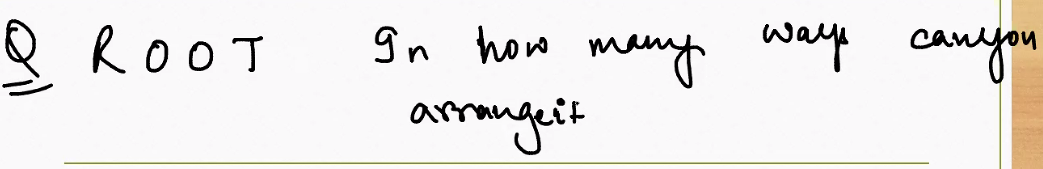 Q ROOT In how many ways can you
arrange it